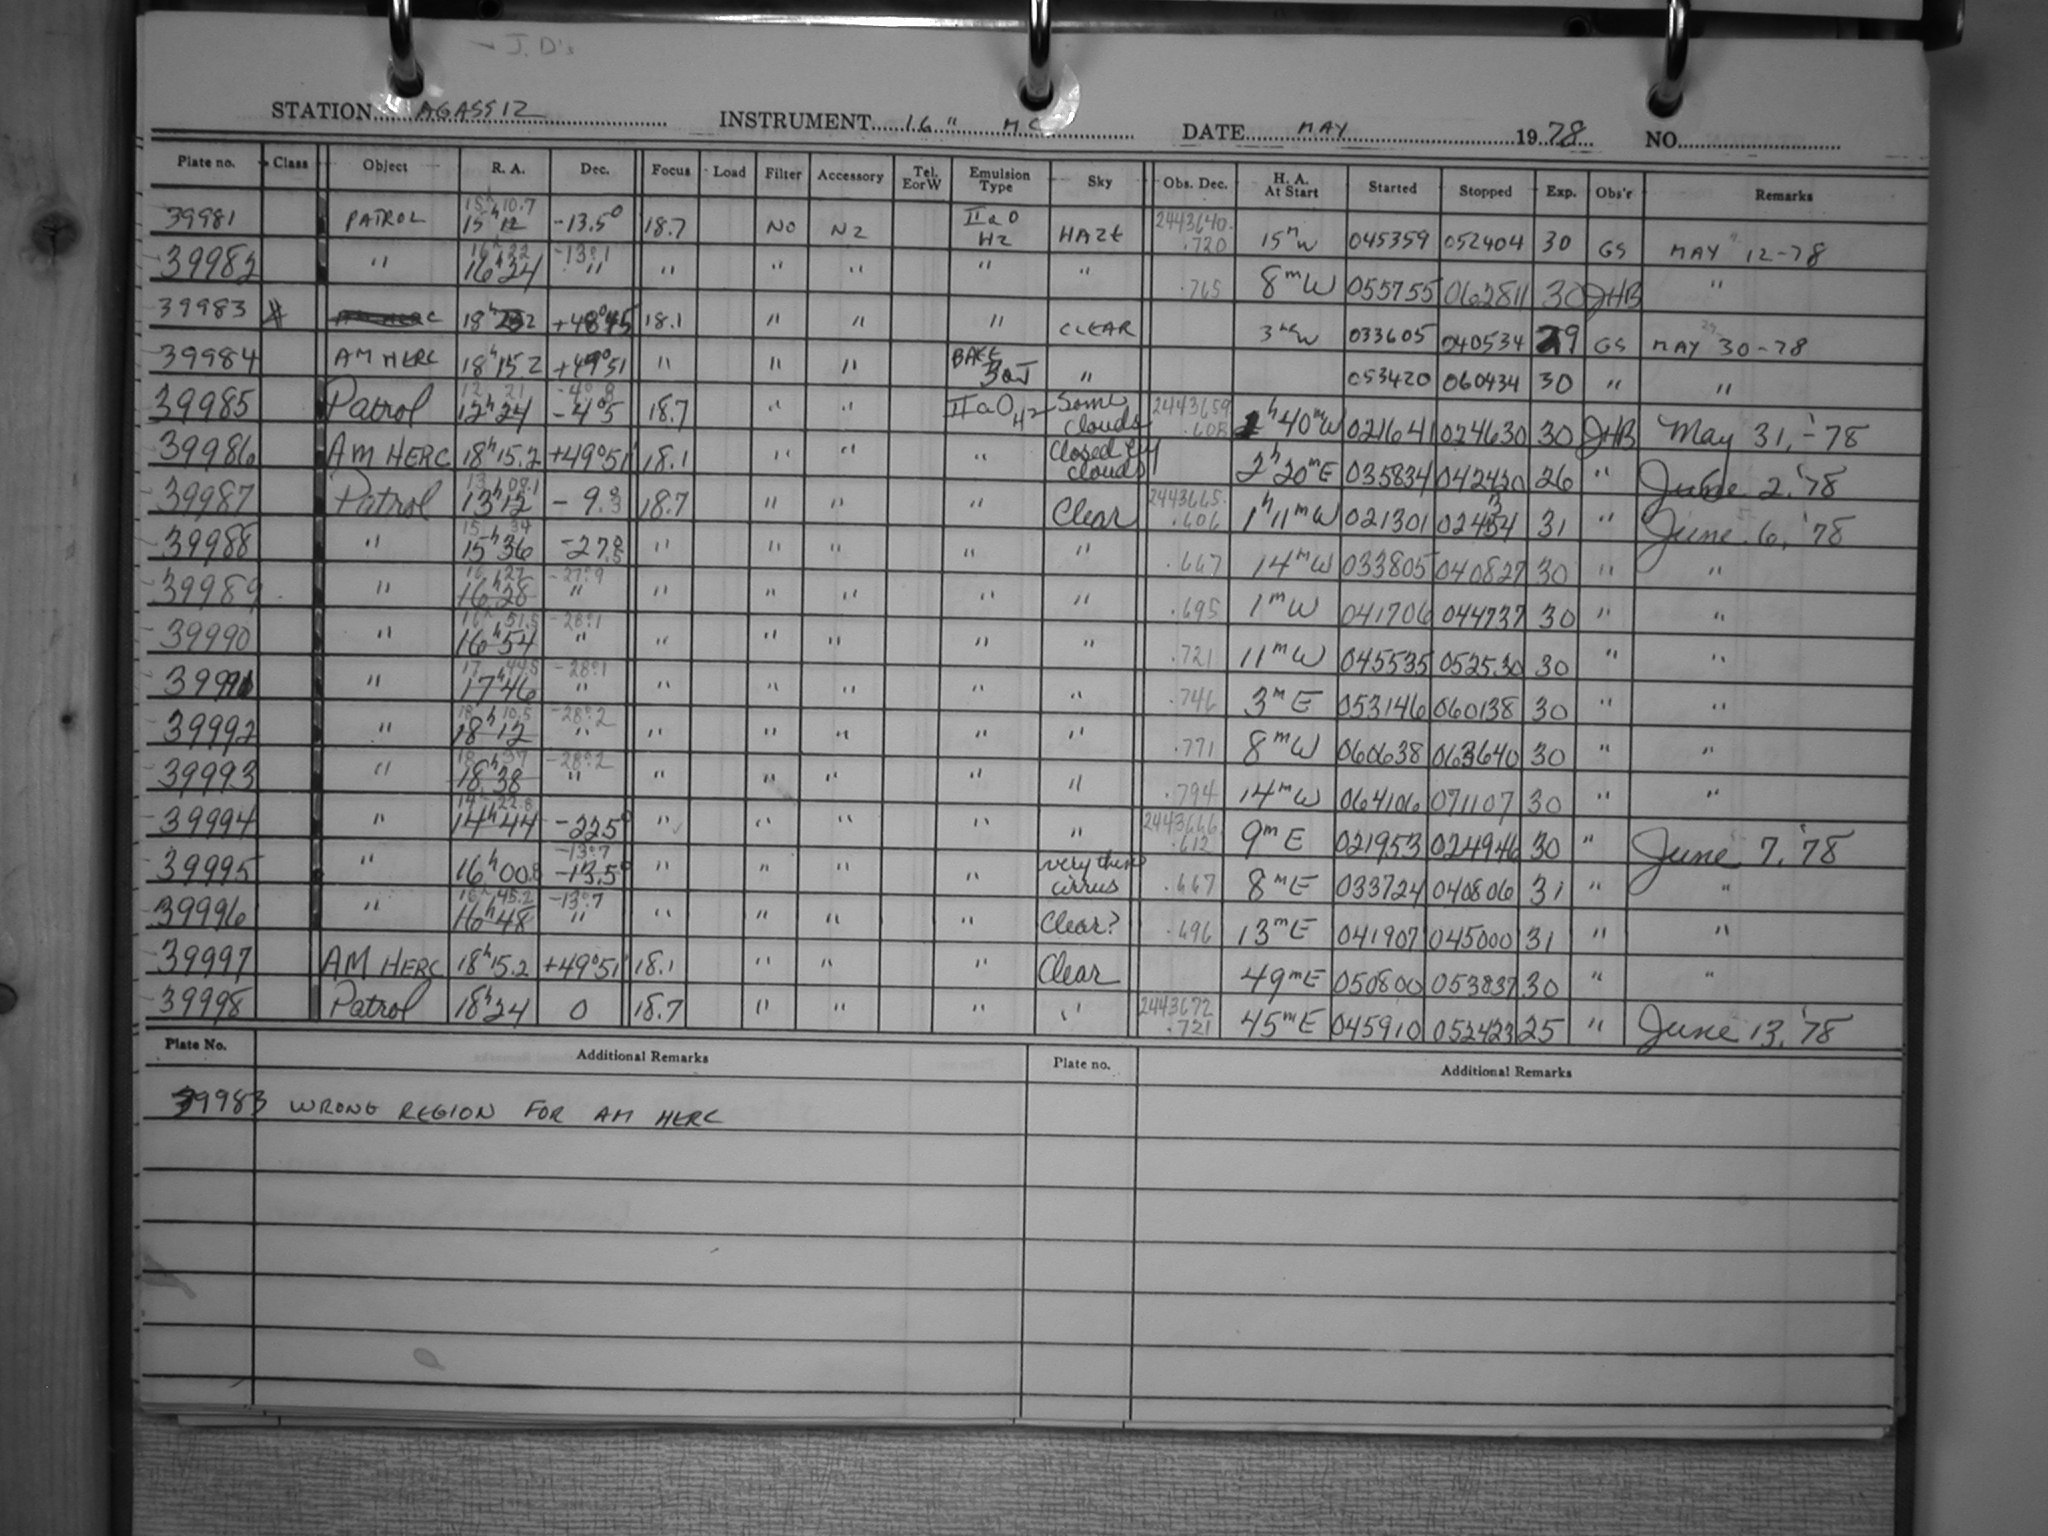 → J. D's
STATION AGASSIZ INSTRUMENT 16" MC DATE MAY 1978 NO.
Plate no. Class Object R. A. Dec. Focus Load Filter Accessory Tel. EorW Emulsion Type Sky Obs. Dec. H. A. At Start Started Stopped Exp. Obs'r Remarks
15h 10.7
39981 PATROL 15h 12 -13.5° 18.7 NO N2 IIaO H2 HAZE 2443640. .720 15m W 045359 052404 30 GS MAY 12-78
16h 22 -13°.1
39982 " 16h 24 " " " " " " .765 8m W 055755 062811 30 JHB "
39983 18h 18.1 " " " CLEAR 033605 040534 29 GS MAY 30-78
39984 AM HERC 18h 15.2 +49°51 " " " " 053420 060434 30 " "
12 21 -4°.8
39985 Patrol 12h 24 -4°.5 18.7 " " IIaO H2 Some clouds 2443659 .608 h 40m W 021641 024630 30 JHB May 31, -78
39986 AM HERC 18h 15.2 +49°51' 18.1 " " " Closed by clouds 2h 20m E 035834 042420 26 " June 2, '78
13 09.1
39987 Patrol 13h 12 -9°.3 18.7 " " " Clear 2443665. .606 1h 11m W 021301 31 " June 6, '78
15 34
39988 " 15h 36 -27°.5 " " " " " .667 14m W 033805 040827 30 " "
16 27 -27°.9
39989 " 16h 28 " " " " " " .695 1m W 041706 044737 30 " "
16h 51.5 -28°.1
39990 " 16h 54 " " " " " " .721 11m W 045535 052530 30 " "
17 44.5 -28°.1
39991 " 17h 46 " " " " " " .746 3m E 053146 060138 30 " "
18 10.5 -28°.2
39992 " 18h 12 " " " " " " .771 8m W 060638 063640 30 " "
18 37 -28°.2
39993 " 18h 38 " " " " " " .794 14m W 064106 071107 30 " "
39994 " 14h 44 -22.5° " " " " " 2443666. .612 9m E 021953 024946 30 " June 7, '78
-13°.7
39995 " 16h 00.8 -13.5° " " " " very thin cirrus .667 8m E 033724 040806 31 " "
16h 45.2 -13°.7
39996 " 16h 48 " " " " " Clear? .696 13m E 041907 045000 31 " "
39997 AM HERC 18h 15.2 +49°51' 18.1 " " " Clear 49m E 050800 053837 30 " "
39998 Patrol 18h 24 0 18.7 " " " " 2443672 .721 45m E 045910 052423 25 " June 13, '78
Plate No. Additional Remarks Plate no. Additional Remarks
39983 WRONG REGION FOR AM HERC